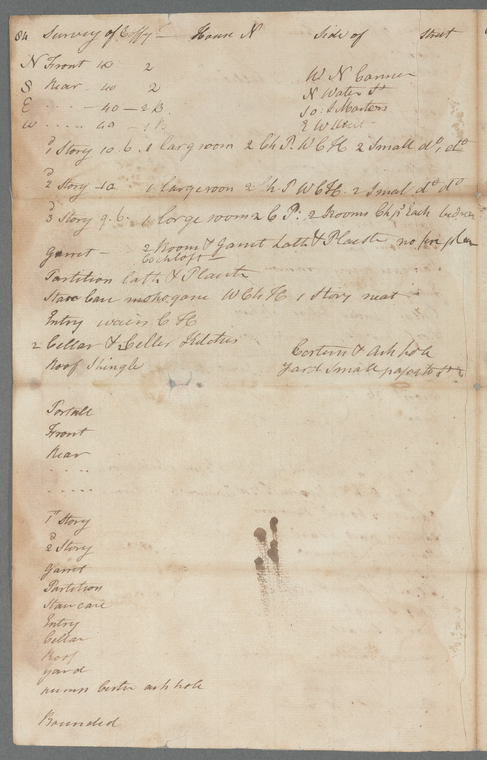 84 Survey of House N Side of strut
N Front 40 2
S Rear 40 2 W N Canner
E - 40 - 2 B. N Water St
W 40 - 1 B So. Marten
E W
1 Story 10. 6. 1 larg room 2 Ch P. W C H 2 Small do. do
2 Story - 10 1 large room 2 Ch P W C H. 2 Smal do do
3 Story 9. 6. 1 lorge room 2 C P. 2 Rooms Ch Each
Garret - 2 Room & Garret Lath & Plaster no fire plan
Cockloft
Partition lath & Plaister
Stare Case mohogane W Ch H 1 Story neat
Entry wains C H
2 Cellar & 2 Celler Kitchin
Cestern & Ash hole
Roof Shingle
Yard Small
Portall
Front
Rear
1st Story
2 Story
Garret
Partition
Stair care
Entry
Cellar
Roof
Yard
pumps Cester ash hole
Bounded